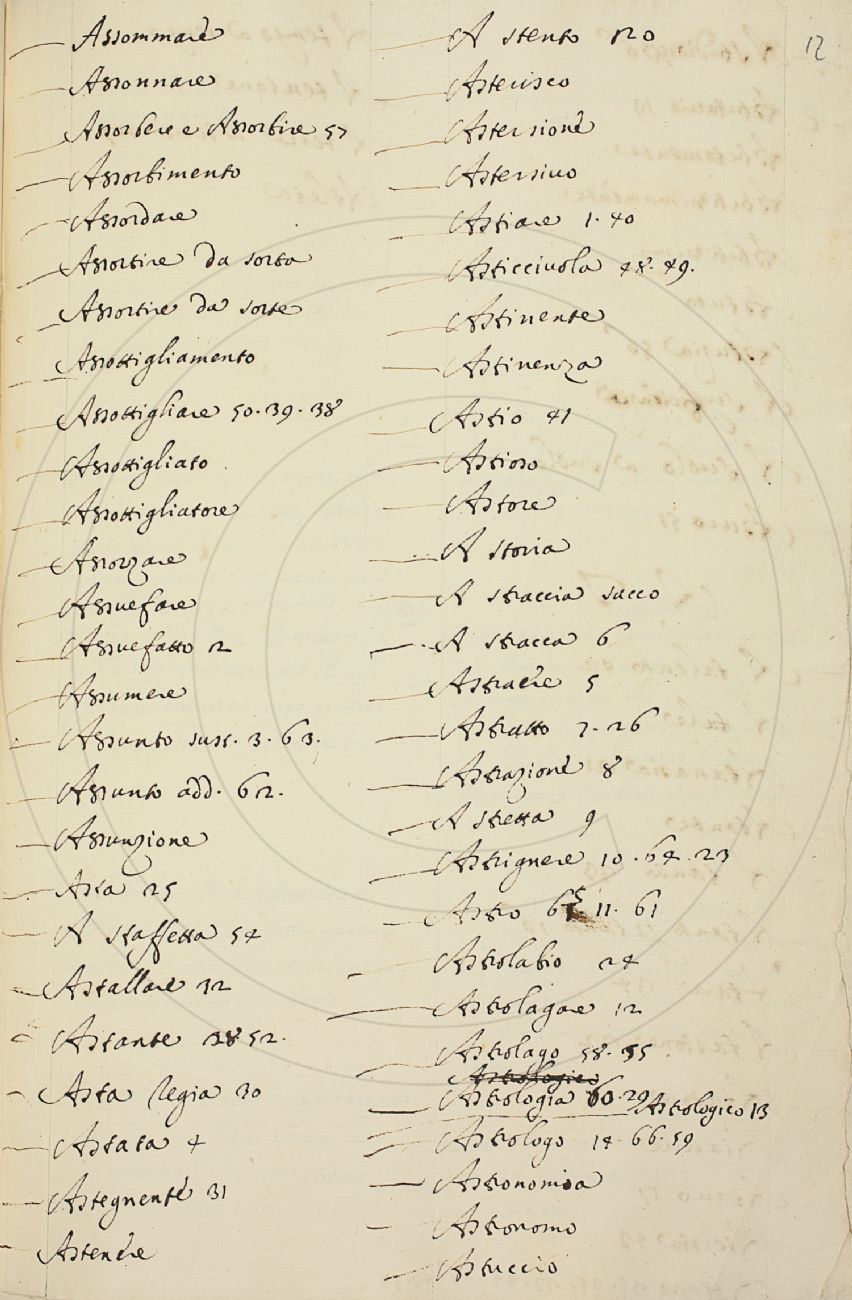 12
Assommare
Assonnare
Assorbere e Assorbire 57
Assorbimento
Assordare
Assortire da sorta
Assortire da sorte
Assottigliamento
Assottigliare 50. 39. 38
Assottigliato
Assottigliatore
Assozzare
Assuefare
Assuefatto 2
Assumere
Assunto sust. 3. 63.
Assunto add. 62.
Assunzione
Asta 25
A staffetta 54
Astallare 32
Astante 52.
Asta regia 30
Astata 4
Astegnente 31
Astenere
A stento
Asterisco
Astersione
Astersivo
Astiare 1. 40
Asticciuola 48. 49.
Astinente
Astinenza
Astio 41
Astioso
Astore
A storia
A straccia sacco
A stracca 6
Astraere 5
Astratto 7. 26
Astrazione 8
A stretta 9
Astrignere 10. 64. 23
Astro 11. 61
Astrolabio 24
Astrolagare 12
Astrolago 58. 35
Astrologico
Astrologia 60. 29 Astrologico 13
Astrologo 14. 66. 59
Astronomia
Astronomo
Astuccio